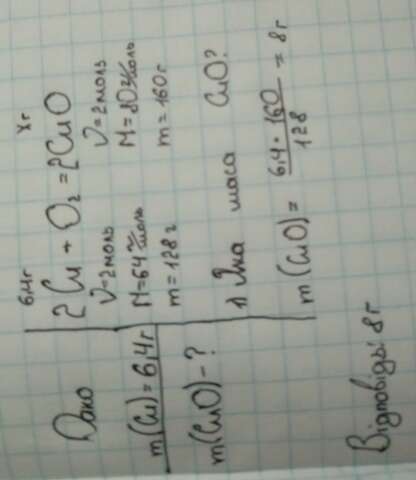 Дано
m(Cu)=6,4г
m(CuO)-?
6,4г xг
2Cu + O₂ = 2CuO
ν=2моль ν=2моль
M=64г/моль M=80г/моль
m=128г m=160г
1) Яка маса CuO?
m(CuO) = 6,4·160/128 = 8г
Відповідь: 8г